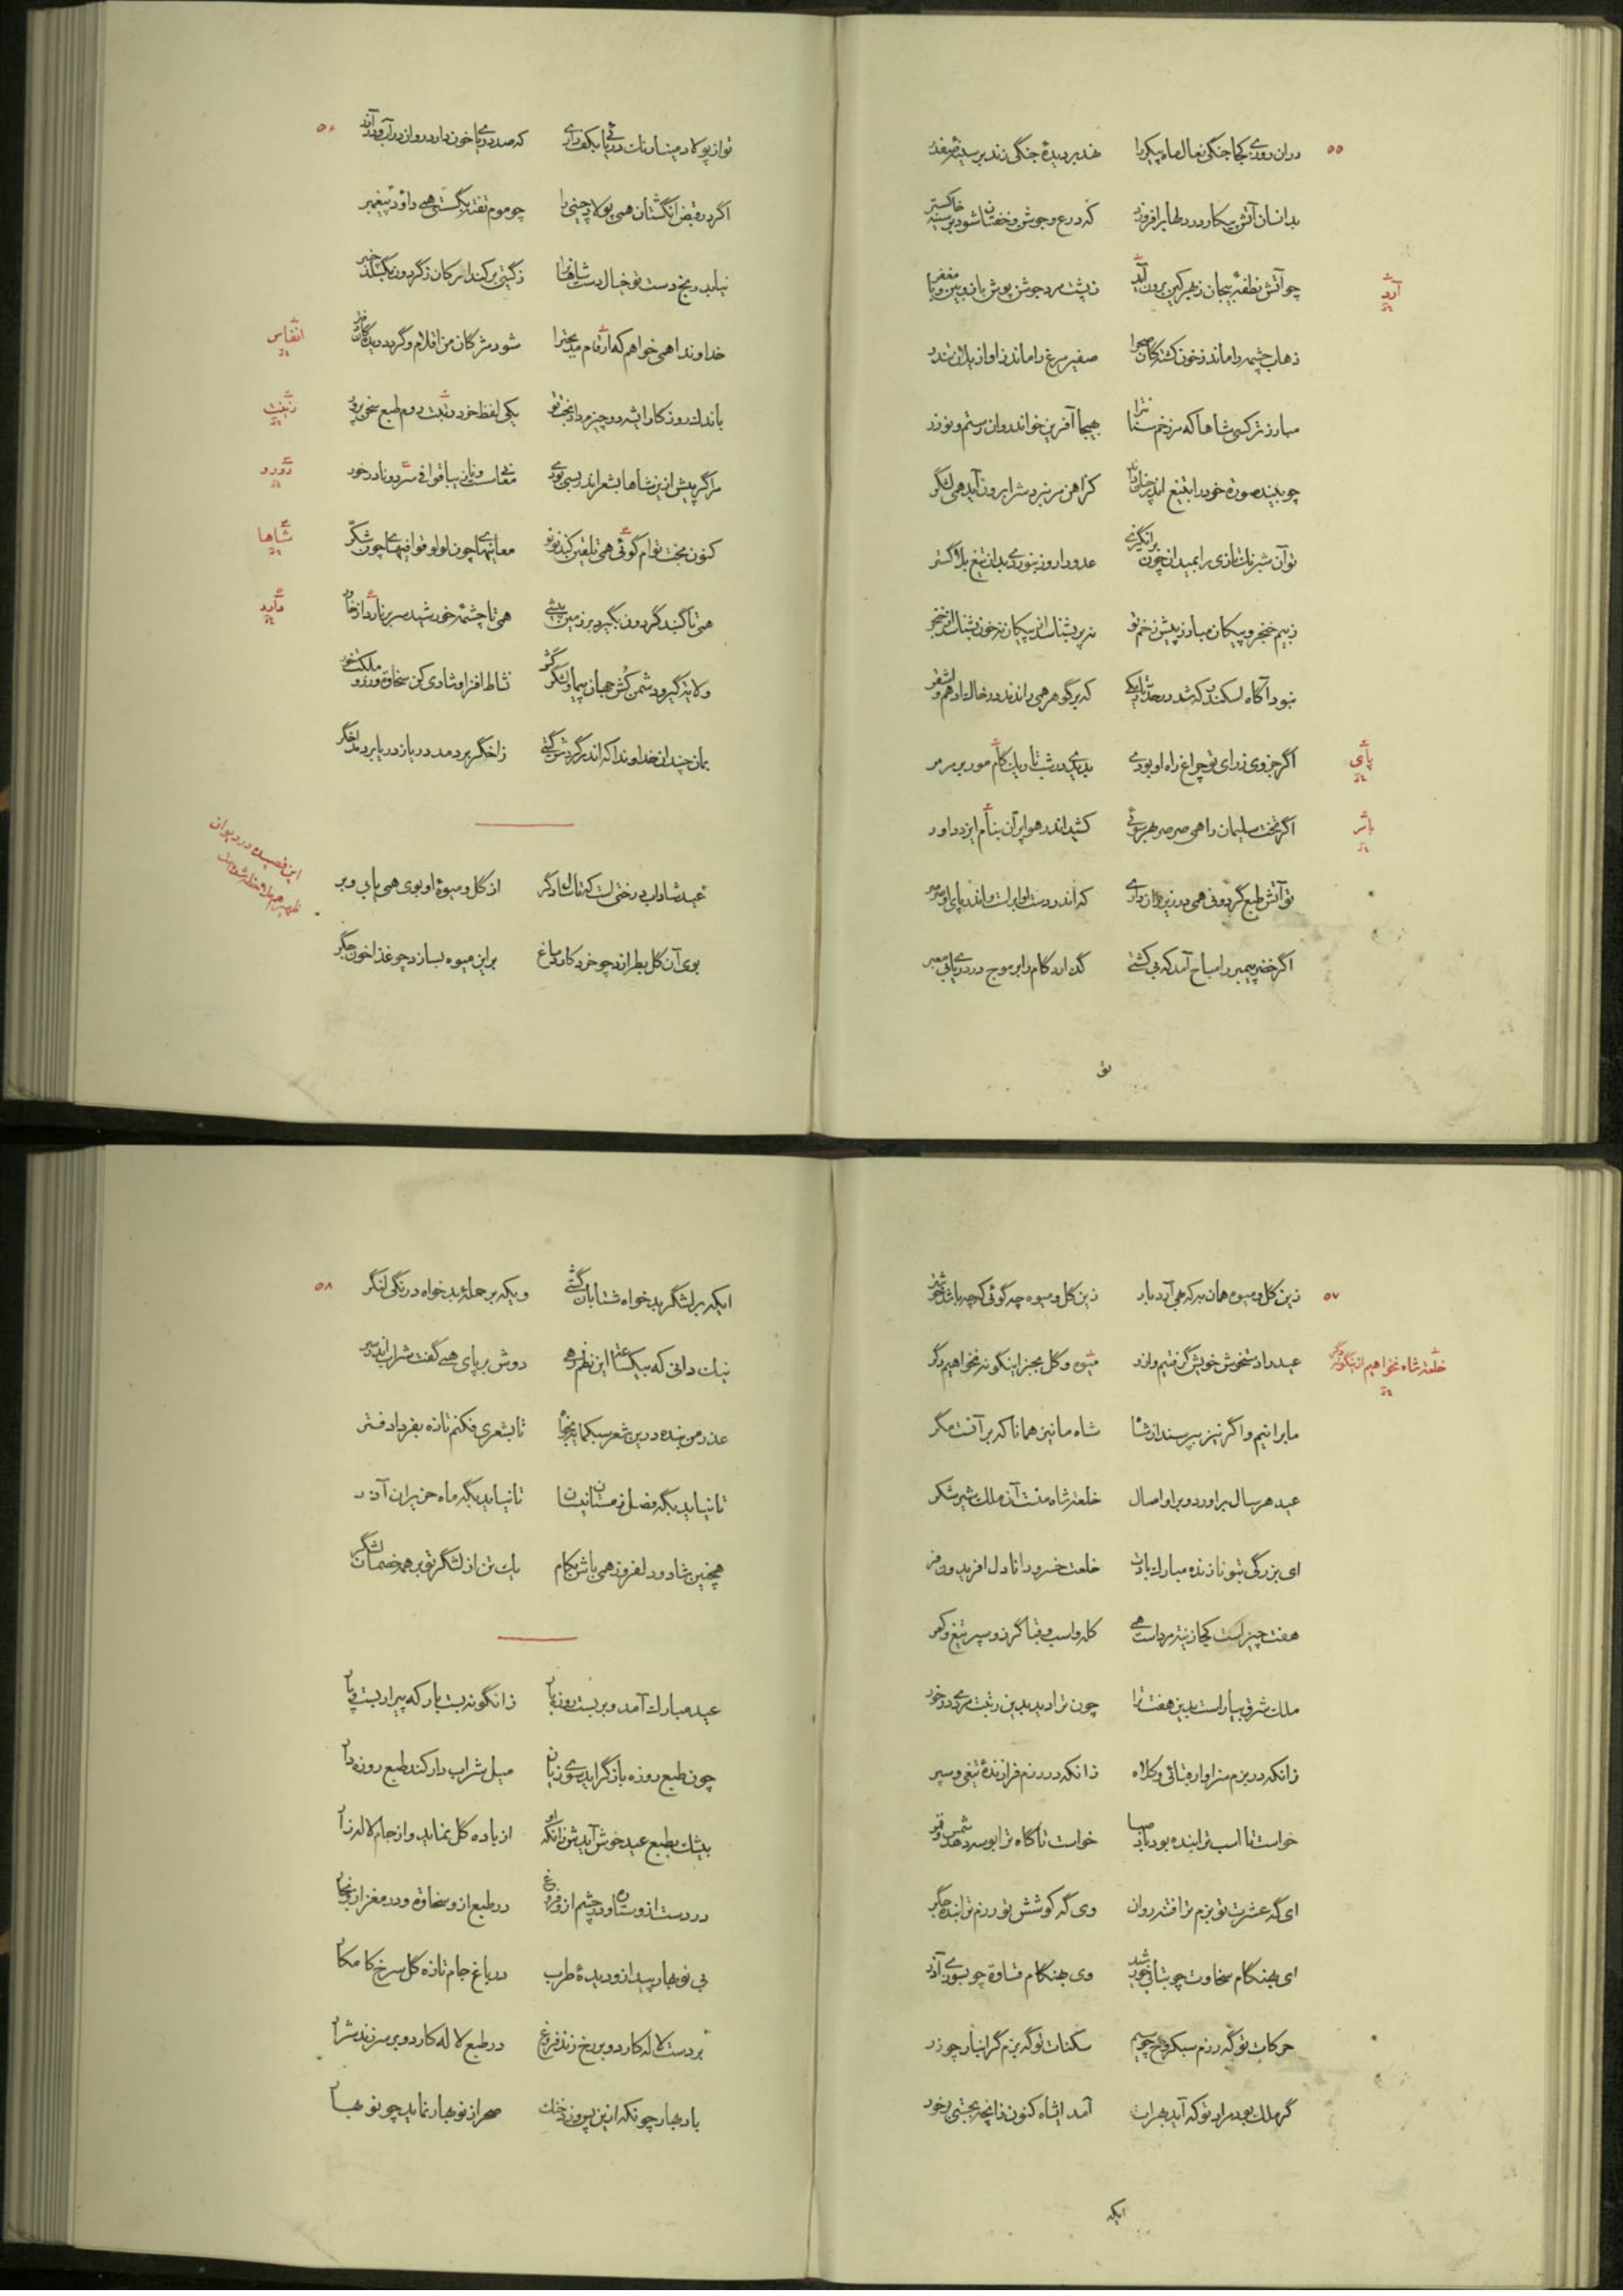 ۵۵
دران روزی کجا جنگی نعال ماه پیکر را هژبر دیدهٔ جنگی زند بر سینهٔ صفدر
بدانسان آتش پیکار در دلها برافروزد که درع و جوشن و خفتان شود بر سینه خاکستر
چو آتش نطفهٔ بیجان زهر کین برون آید ز پشت مرد جوشن پوش با زوبین و با مغفر
آرد
زهاب چشمه را ماند ز خون کشتگان صحرا صفیر مرغ را ماند ز آواز یلان تندر
مبارز ترکسی شاها که در زخم سنان ترا بهیجا آفرین خواند روان رستم و نوذر
چو بیند صورة خود را بتیغ اندر کز آهن مر نبردش را برون آید همی لشکر
تو آن شیرنک تازی را بمیدان چون برانگیزی عدو را روز بنوردی بدان تیغ بلا گستر
ز بیم خنجر و پیکان مبارز پیش زخم تو نه پر بشناسد از پیکان نه خون بشناسد از خنجر
نبود آگاه اسکندر که شد در حد تاریکی که بر گوهر همی راندند در خاک ادهم و اشقر
اگر جزوی ز رای تو چراغ راه او بودی بدیدی در شب تاریک کام مور بر مرمر
پای
اگر تخت سلیمان را همی صرصر بهر سوئی کشید اندر هوا بر آن بنام ایزد داور
باثر
تو آتش طبع گردونی همی در زیر ران داری که اندر دست او ابر است و اندر پای او صرصر
اگر خضر پیمبر را مباح آمد که بی کشتی گذارد کام را بر موج در دریای معبر
تو
۵۶
تو از پولاد مینا رنگ دریائی بکف داری که صد دریا خون دارد روان در آب و در آذر
اگر در قبض انگشتان همی پولاد چینی را چو موم تفته بگسستی همی داود پیغمبر
نیابد رنج دست تو خیال دست شاهان را ز گیتی برکند ارکان ز گردون بگسلد چنبر
خداوندا همی خواهم که ارقام مدیحت را شود مژگان من اقلام و گردد دیدگان دفتر
انفاس
باندک روزگار ایشه دو چیزم داد بخت تو یکی لفظ خرد رتبت دوم طبع سخن پرور
زینت
مرا گر پیش ازین شاها بشعر اندر بسی بودی معانی سست و نازیبا قوافی سرد و نادرخور
دورو
کنون بخت توام گوئی همی تلقین کند نونو معانیهای چون لولو قوافیهای چون شکر
شاها
همی تا گنبد گردون بگیرد بر زمین پیشی همی تا چشمهٔ خورشید سر بر نارد از خاور
دارد
ولایة گیر و دشمن کش جهان پیمای و لشکر کش نشاط افزا و شادی کن سخاوة ورز و ملکت خور
بمان چندان خداوندا که اندر گردش گیتی ز اخگر بردمد دریا ز دریا بردمد اخگر
این قصیده در دیوان ظهیر
عید شاداب درختی است که تا سال دگر از گل و میوهٔ او بوی همی یابی و بر
بوی آن گل بطرازد چو خرد کار دماغ بر این میوه بسازد چو غذا خون جگر
۵۷
زین گل و میوه همان به که همی آید بار زین گل و میوه چه گوئی که چه باشد خوشتر
عید را دستخوش خویش گرفتیم و ازو میوه و گل بجز اینگونه نخواهیم دگر
خلعة شاه نخواهیم ازینگونه دگر
ما برانیم و اگر نیز بپرسند از شاه شاه ما نیز همانا که برآنست مگر
عید هر سال برآورد و بر او امسال خلعة شاه منت آن ملک شیر شکر
ای بزرگی بتو نازنده مبارک بادت خلعت خسرو دانا دل افریدون فر
هفت چیز است کجا زینة مردانست همی کله و اسب و قبا گرز و سپر تیغ و کمر
ملک شرق بیاراست بدین هفت ترا چون ترا دید بدین رتبت مردی در خور
زانکه در بزم سزاوار قبائی و کلاه زانکه در رزم فرازندهٔ تیغی و سپر
خواست تا اسب ترا بنده بود باد صبا خواست تا گاه ترا بوسه دهد شمس و قمر
ای گه عشرت تو بزم ترا فتنه روان وی گه کوشش تو رزم ترا بنده جگر
ای بهنگام سخاوت چو بتابی خورشید وی بهنگام قساوة چو بسوزی آذر
حرکات تو گه رزم سبکروح چو سیم سکنات تو گه بزم گرانبار چو زر
گر ملک بود مراد تو که آید بهران آمد ایشاه کنون زانچه بجستی درخور
ایکه
۵۸
ایکه بر لشگر بدخواه شتابان گشتی ویکه بر حملهٔ بدخواه درنگی لنگر
نیک دانی که بیکساعة این نظم رهی دوش بر پای همی گفت شراب اندر سر
عذر من بنده درین شعر سبکمایه بخواه تا بشعری فکنم تازه بفردا دفتر
تا نیاید بگه فصل زمستان نیسان تا نیاید بگه ماه حزیران آذر
همچنین شاد و دلفروز همی باش بکام یک تن از لشگر تو بر همه خصمان لشگر
عید مبارک آمد و بربست روزه بار زانگونه بست بار که پیرار بست و پار
چون طبع روزه باز گراید سوی زیان میل شراب دار کند طبع روزه دار
بیشک بطبع عید خوش آید شون زانکه او از باده گل نماید و از جام لاله زار
در دست ازو ستاره و در چشم ازو فروغ در طبع ازو سخاوة و در مغز ازو بخار
بی نوبهار پیدا زو دیدهٔ طرب در باغ جام تازه گل سرخ کامکار
بر دست لاله کارد و بر رخ زند فروغ در طبع لاله کارد و بر سر زند شرار
باد بهار چونکه ازین پس وزد خنک صحرا ز نوبهار نماید چو نوبهار